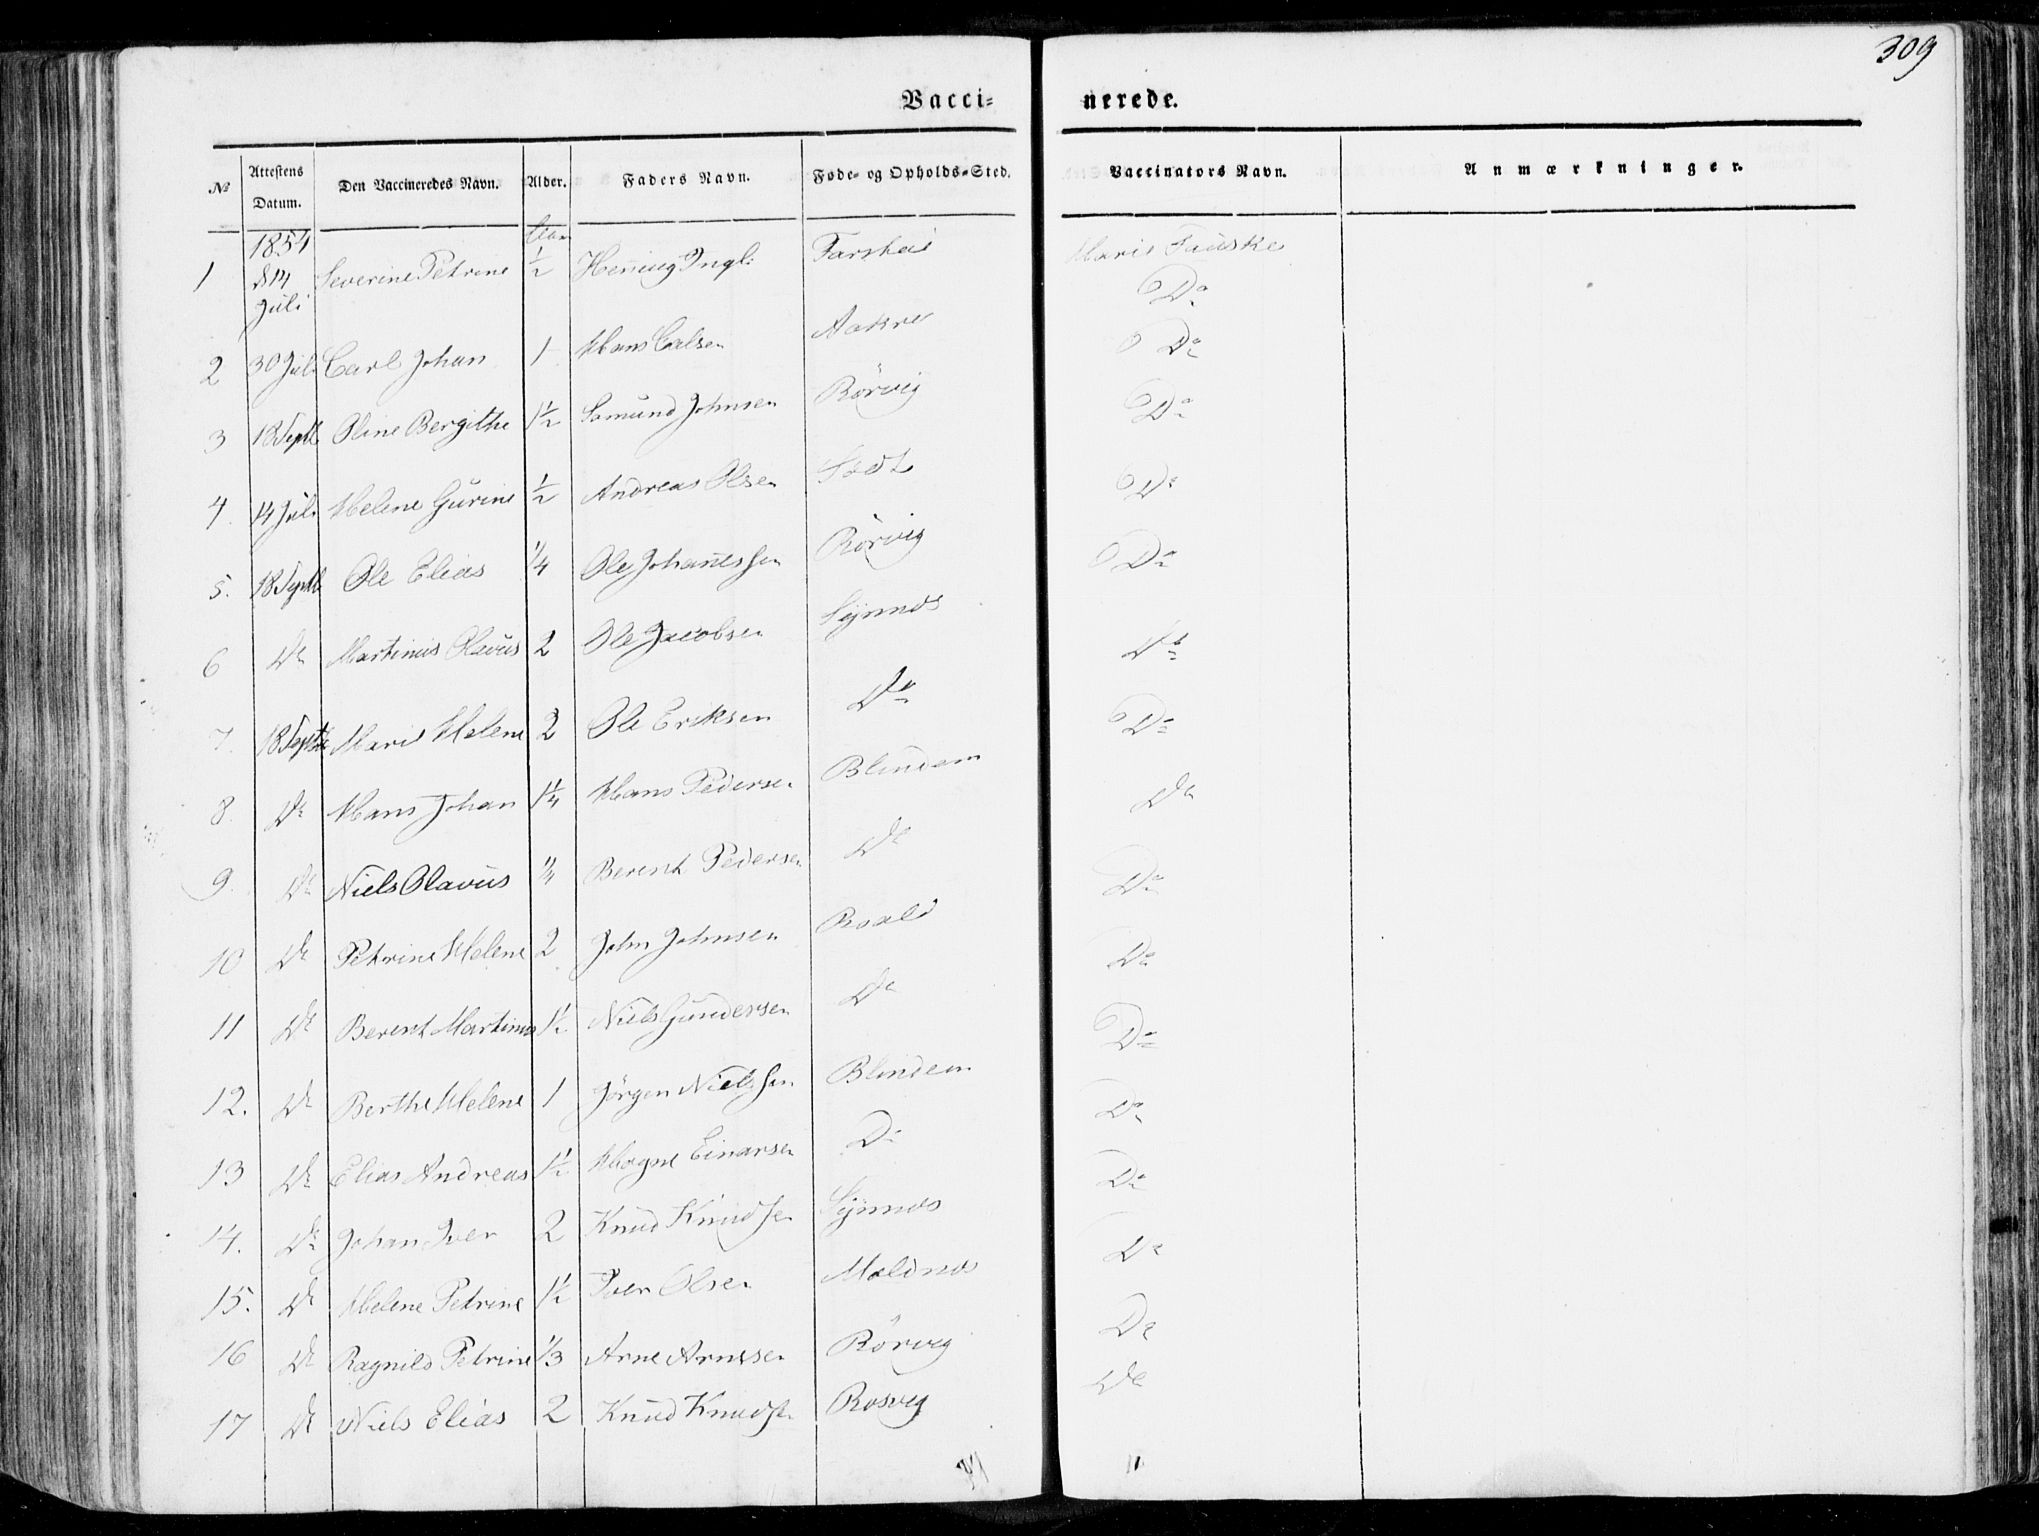 309
Vacci= nerede.
№ Attestens Datum. Den Vaccineredes Navn. Alder. Faders Navn. Føde- og Opholds-Sted. Vaccinators Navn. Anmærkninger.
1854 Aar
1 14 Juli Severine Petrine ½ Hening Ingl: Farstad Marie Fauske
Do
2 30 Juli Carl Johan 1 Hans Carlsen Aakre Do
3 18 Septb Oline Bergithe 1½ Samund Johnsen Rörvig Do
4. 14 Juli Helene Gurine ½ Andreas Olsen Do
5. 18 Septb Ole Elias ¼ Ole Johanessen Rörvig Do
6 Do Martinus Olavus 2 Ole Jacobsen Synnes Do
7. 18 Septb Marie Helene 2 Ole Eriksen Do Do
8. Do Hans Johan 1¼ Hans Pedersen Blindem Do
9. Do Niels Olavus ¼ Berent Pedersen Do Do
10 Do Petrine Helene 2 John Johnsen Roald Do
11 Do Berent Martinus 1½ Niels Gundersen Do Do
12. Do Berthe Helene 1 Jörgen Nielssen Blindem Do
13 Do Elias Andreas 1½ Mogne Einarsen Do Do
14. Do Johan Iver 2 Knud Knudsen Synnes Do
15. Do Helene Petrine 1½ Iver Olsen Moldnes Do
16 Do Ragnild Petrine ⅓ Arne Arnesen Rörvig Do
17 Do Niels Elias 2 Knud Knudsen Rosvig